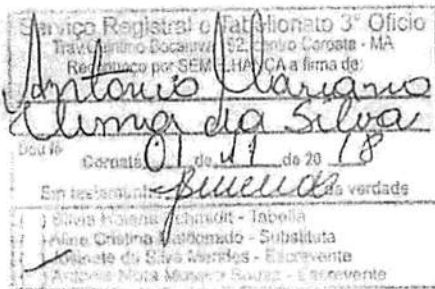 Serviço Registral e Tabelionato 3º Ofício
Trav. Quintino Bocaiuva, 52, Centro Coroatá - MA
Reconheço por SEMELHANÇA a firma de:
Antonio Mariano
da Silva
Dou fé
Coroatá 01 de 11 de 20 18
Em testemunho da verdade
( ) Silvia Helena Schmidt - Tabeliã
( ) Aline Cristina Maldonado - Substituta
da Silva Mendes - Escrevente
( ) Antonia - Escrevente